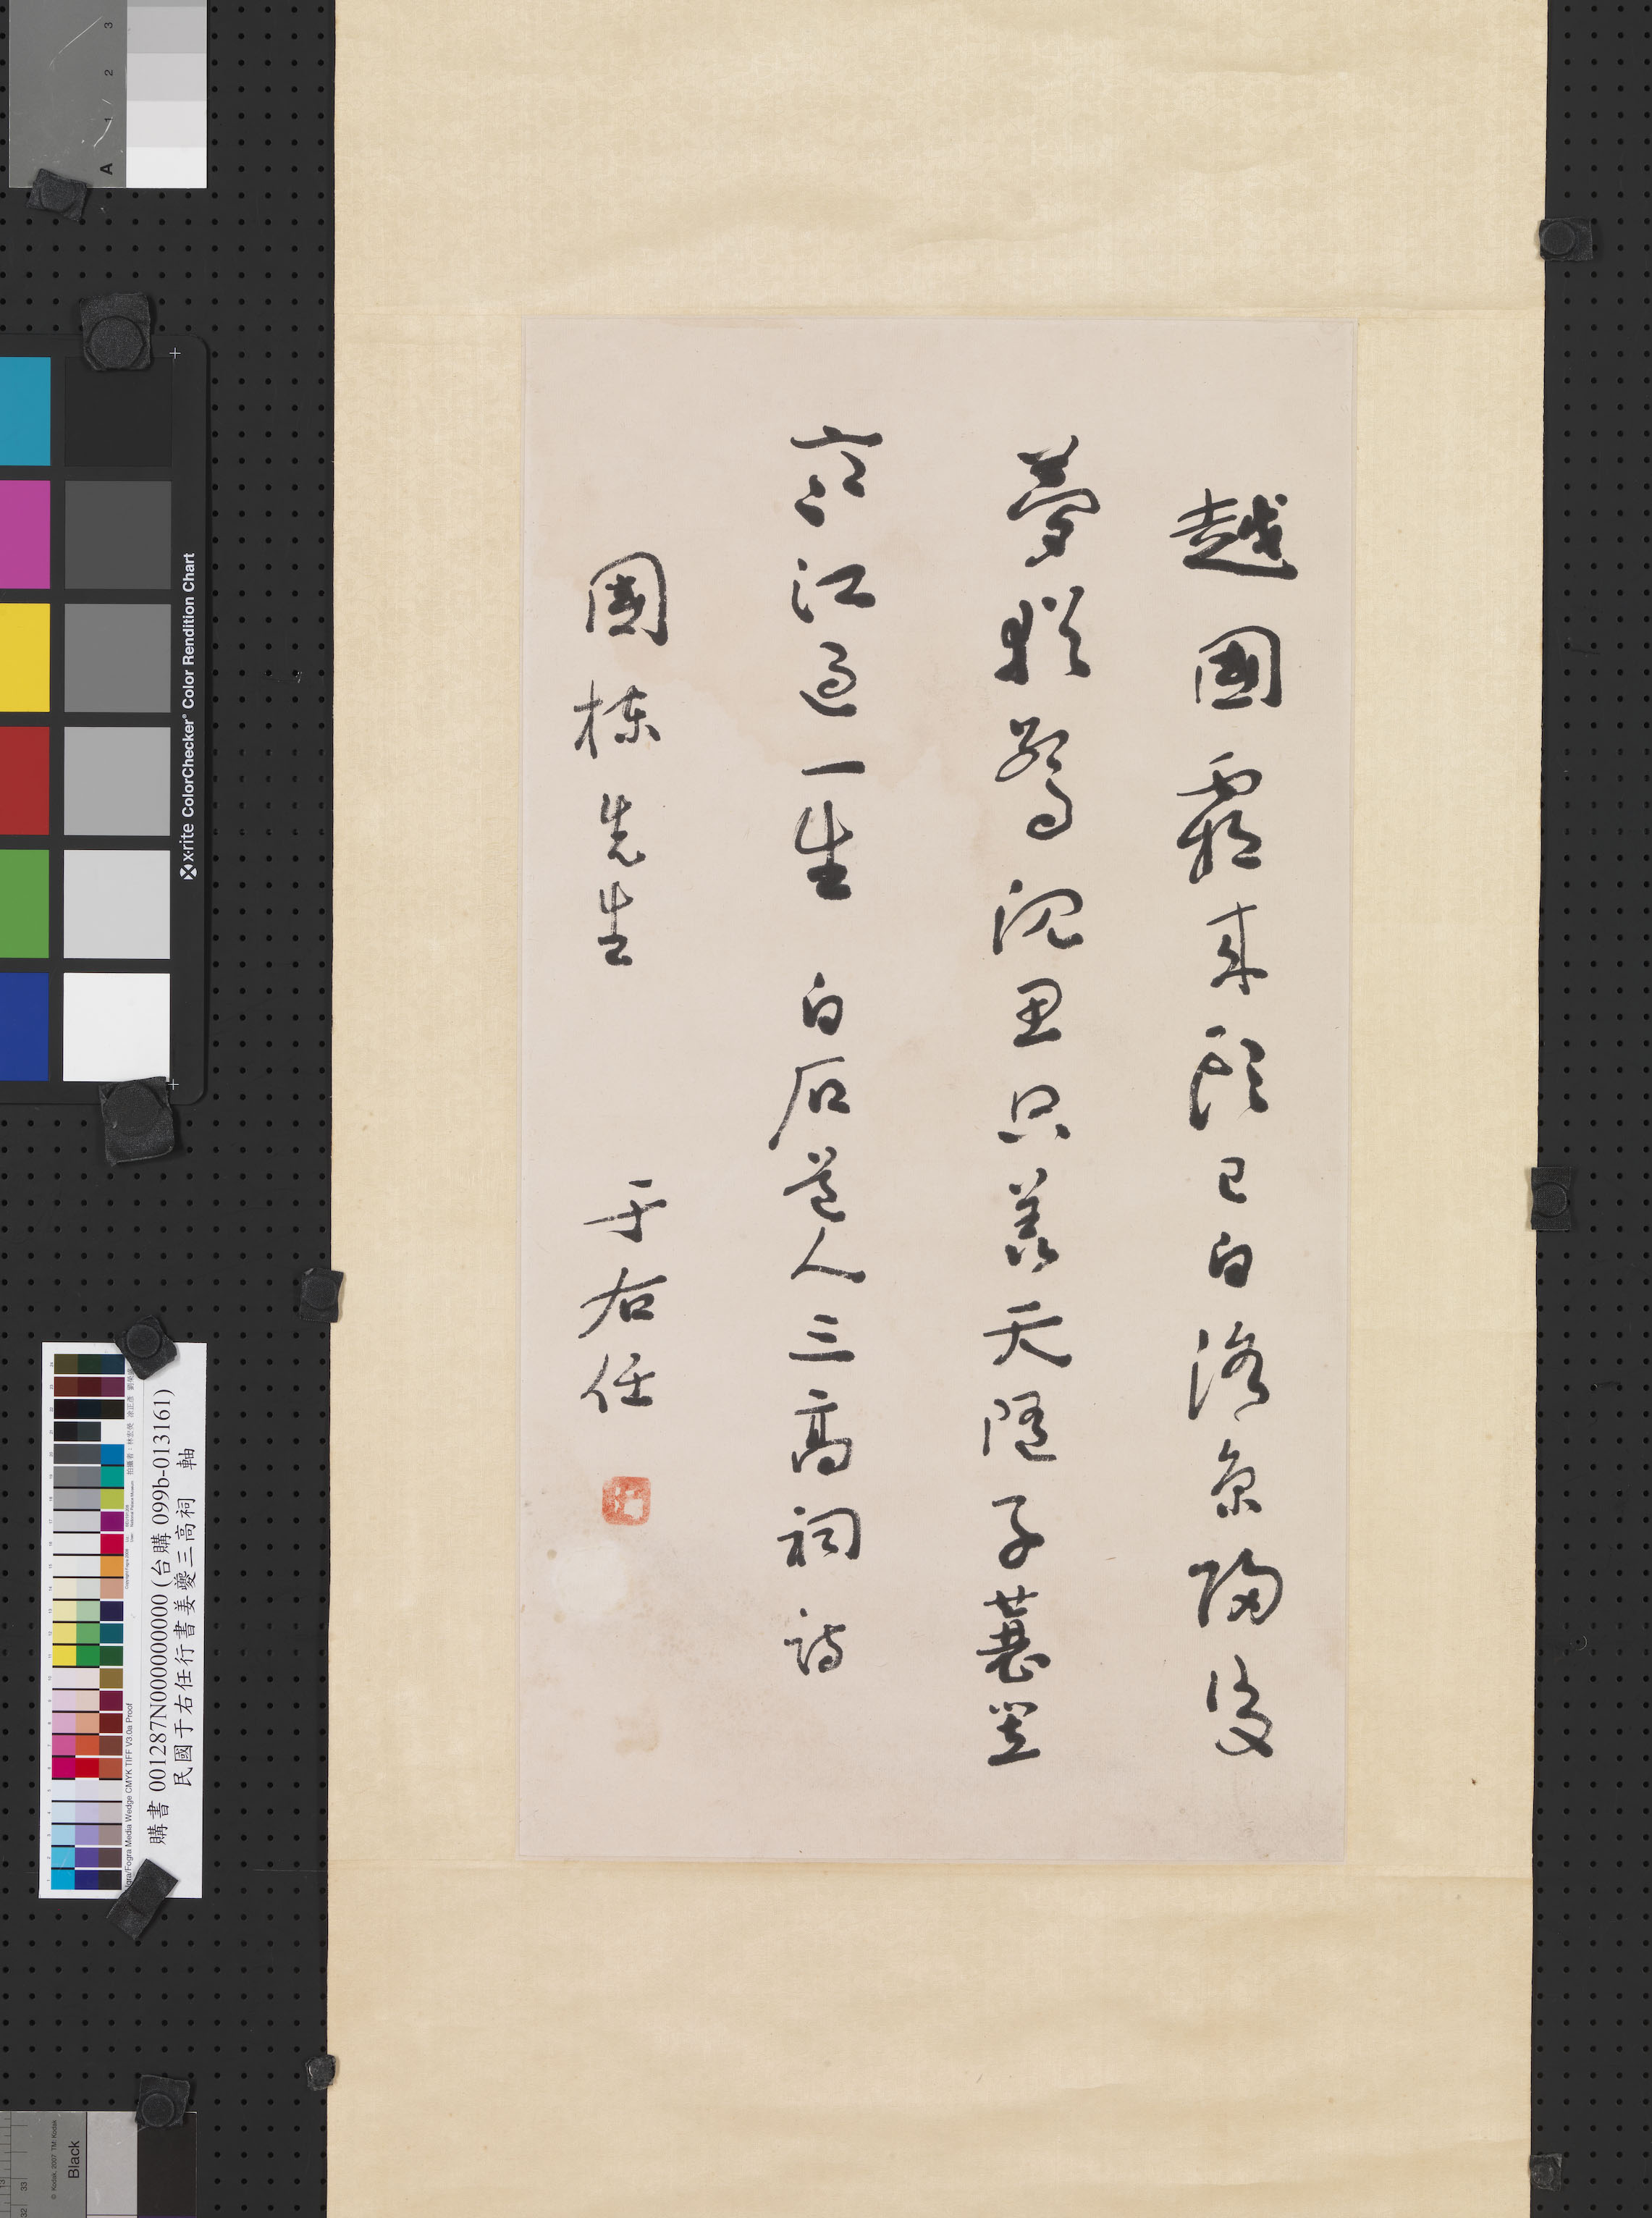 越國霸來頭已白洛京歸後
夢猶驚沈思只羨天隨子蓑笠
寒江過一生 白石道人三高祠詩
國棟先生 于右任
x-rite ColorChecker Color Rendition Chart
購書 001287N000000000 (台購 099b-013161)
民國于右任行書姜夔三高祠 軸
Media Wedge CMYK TIFF V3.0a Proof
A 1 2 3
Black
© Kodak, 2007 TM: Kodak
32 33